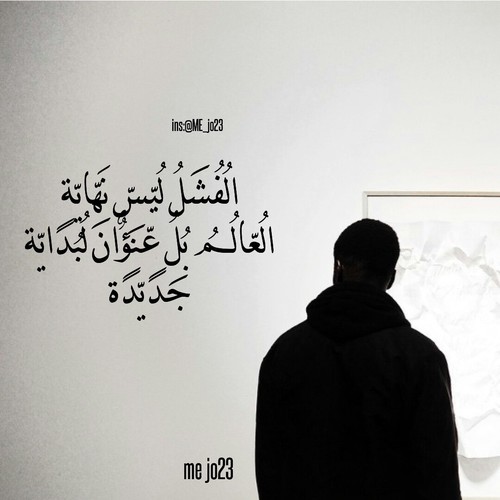 ins:@ME_jo23
الُفُشَلُ لُيَسِ نَهّايَة
الُعّالُمُ بُلُ عّنَوٌانَ لُبًدِايَة
جَدِيَدِة
me jo23